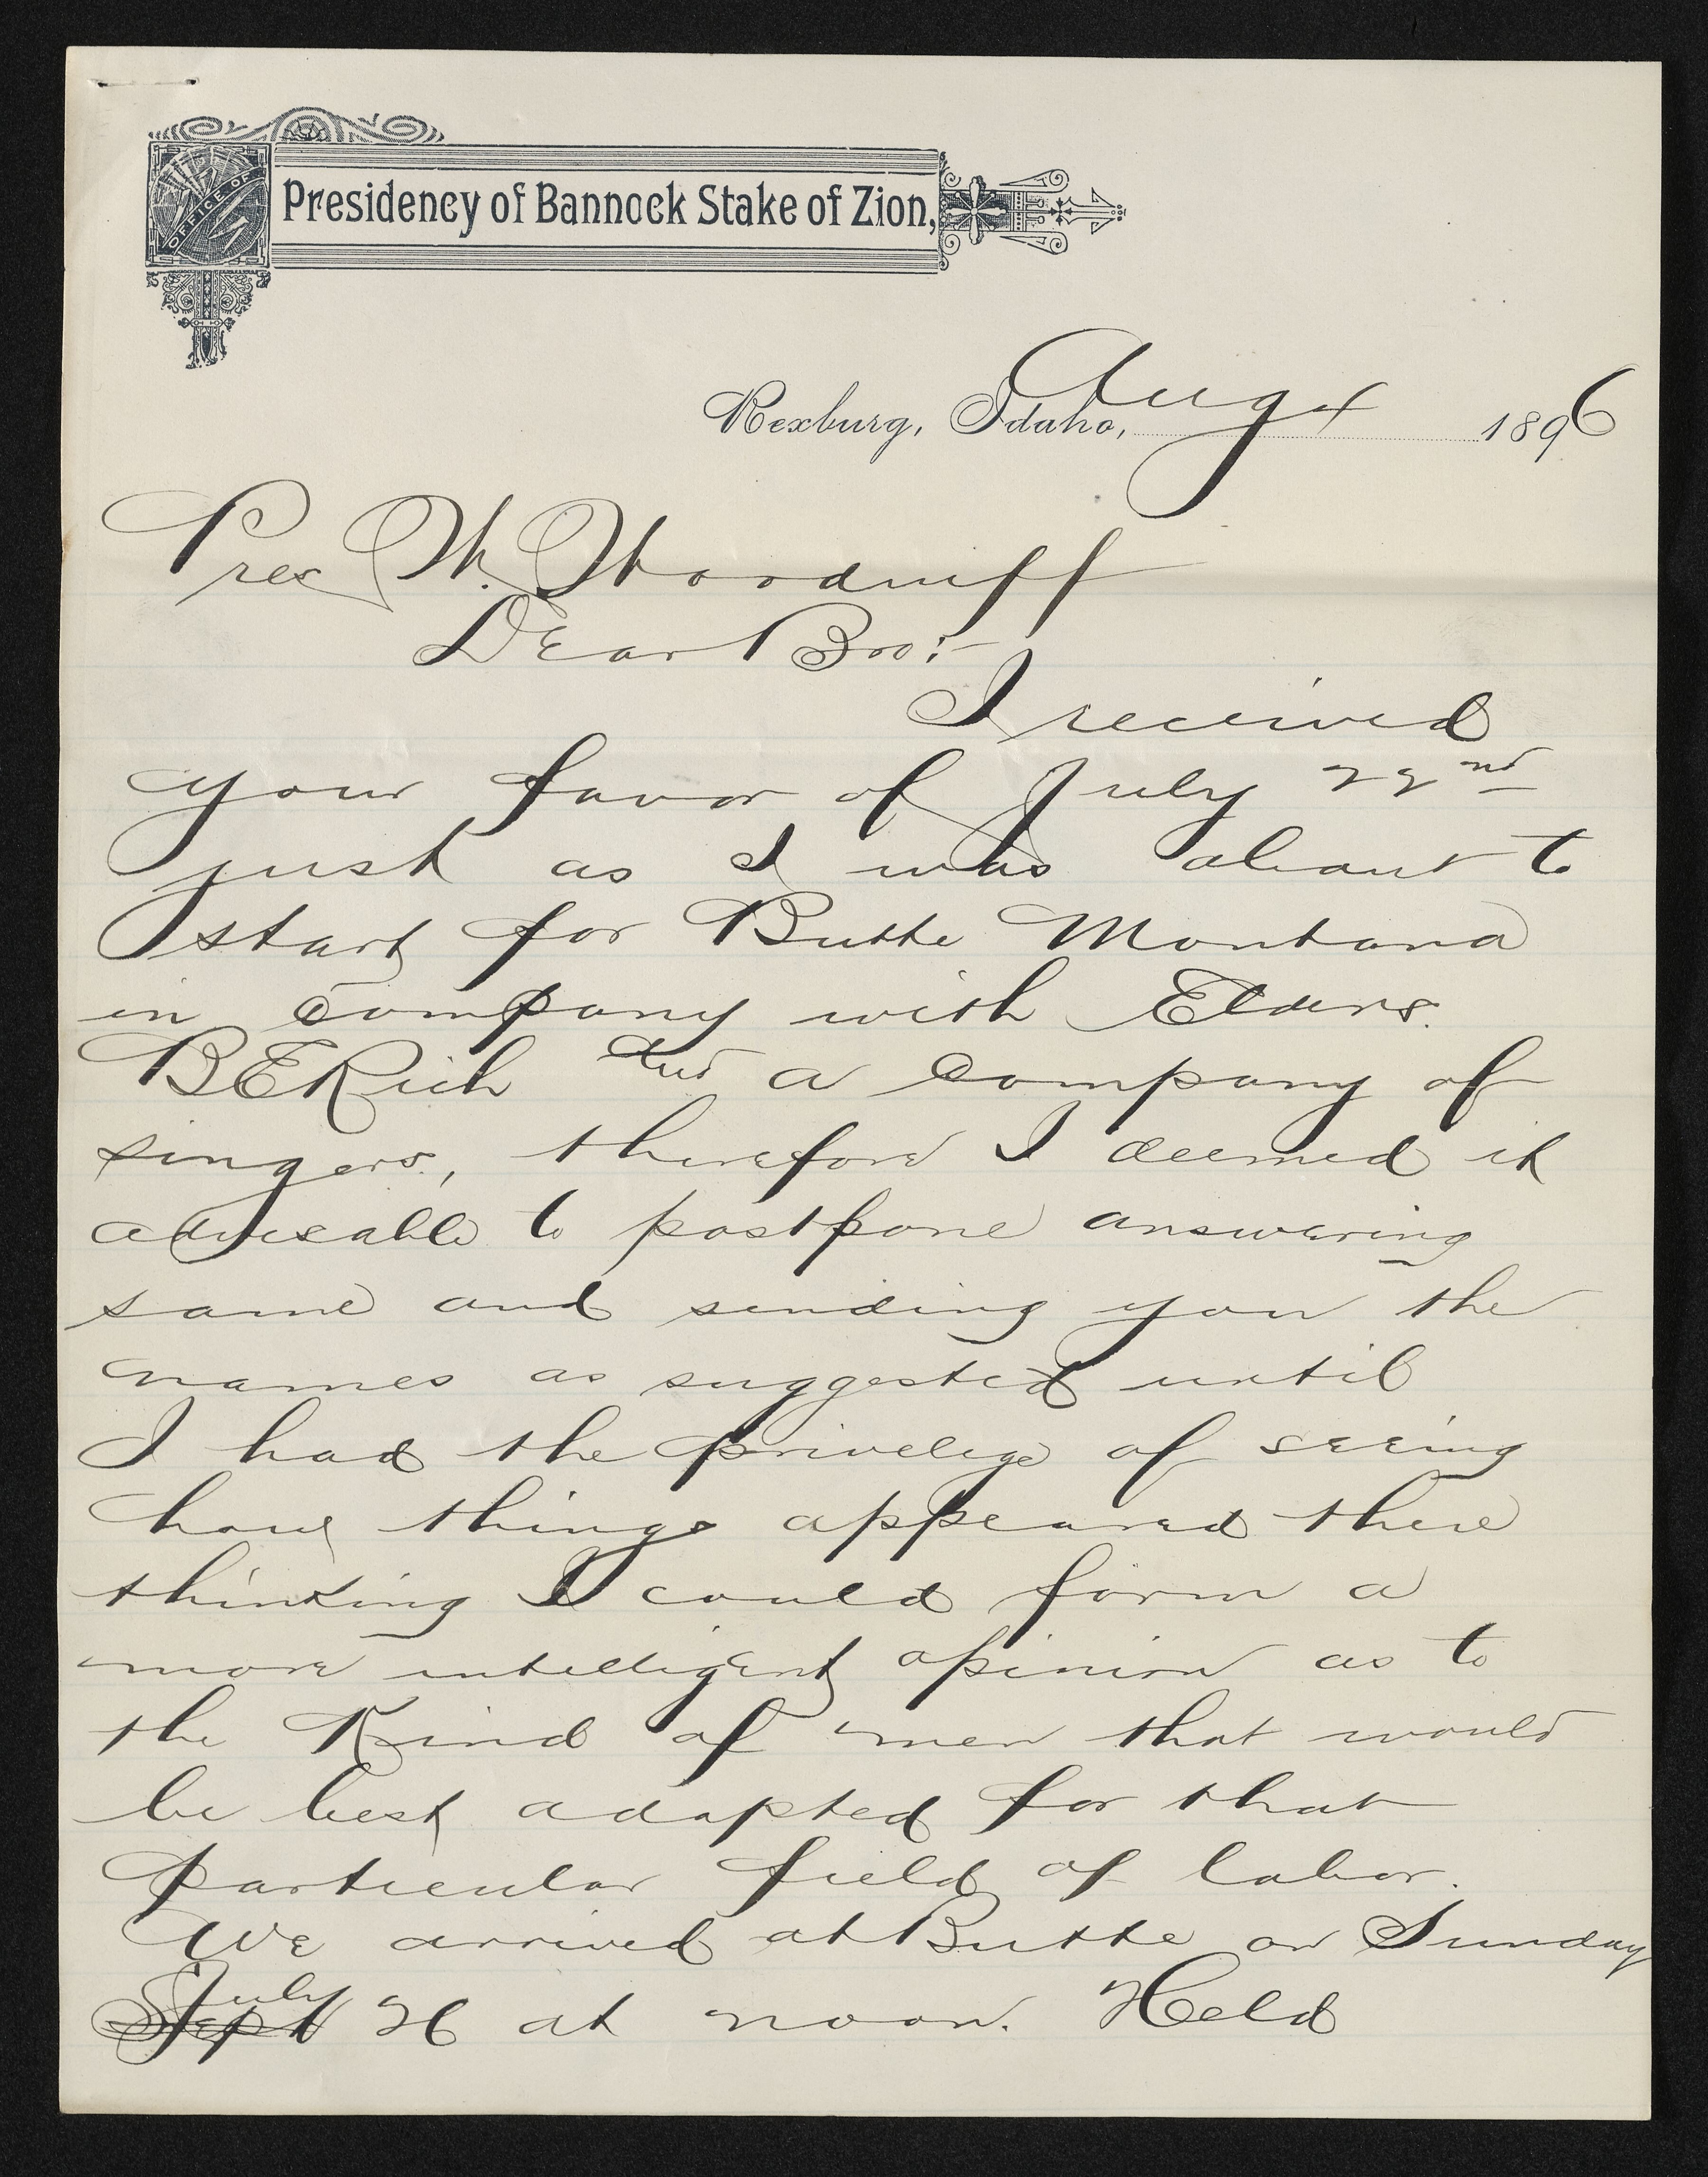 OFFICE OF
Presidency of Bannock Stake of Zion,
Rexburg, Idaho, Aug 4 1896
Pres W. Woodruff
Dear Bro:-
I received
your favor of July 22nd
just as I was about to
start for Butte Montana
in company with Elders.
B E Rich and a company of
singers, therefore I deemed it
adviseable to postpone answering
same and sending you the
names as suggested until
I had the privelige of seeing
how things appeared there
thinking I could form a
more intelligent opinion as to
the kind of men that would
be best adapted for that
particular field of labor.
We arrived at Butte on Sunday
July
Sept 26 at noon. Held